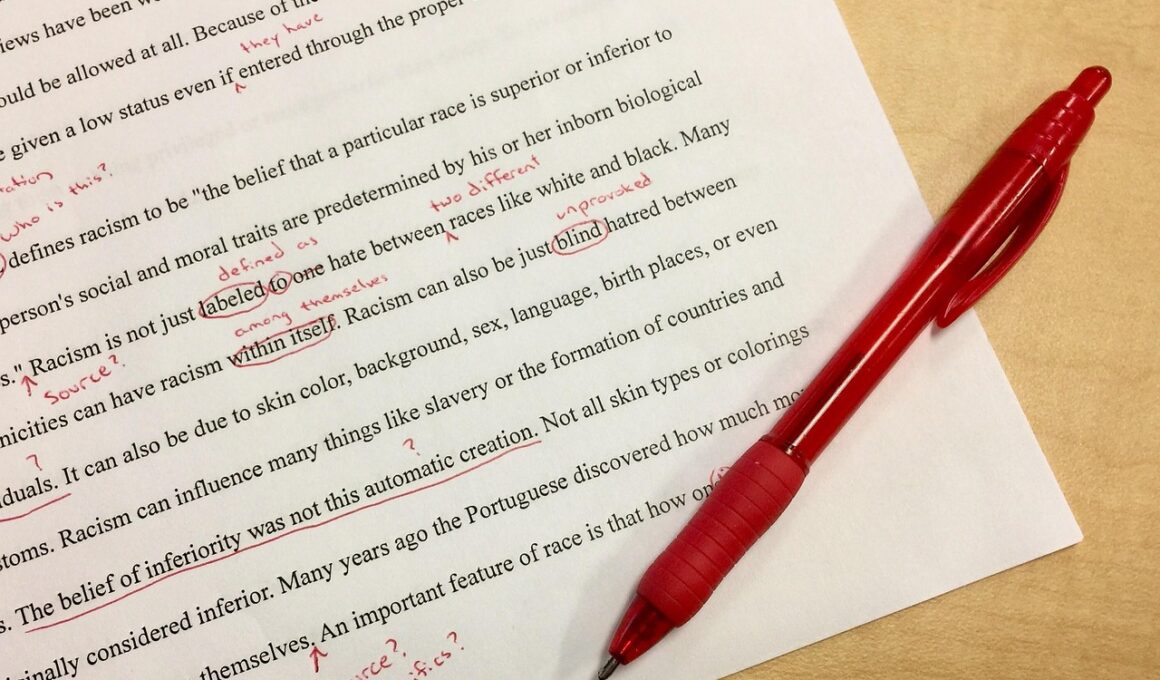 iews have been
they have
ould be allowed at all. Because of the
e given a low status even if entered through the proper
who is this?
defines racism to be "the belief that a particular race is superior or inferior to
person's social and moral traits are predetermined by his or her inborn biological
defined as
two different
s." Racism is not just labeled to one hate between races like white and black. Many
source?
among themselves
unprovoked
nicities can have racism within itself. Racism can also be just blind hatred between
?
duals. It can also be due to skin color, background, sex, language, birth places, or even
stoms. Racism can influence many things like slavery or the formation of countries and
?
s. The belief of inferiority was not this automatic creation. Not all skin types or colorings
inally considered inferior. Many years ago the Portuguese discovered how much
themselves. An important feature of race is that how